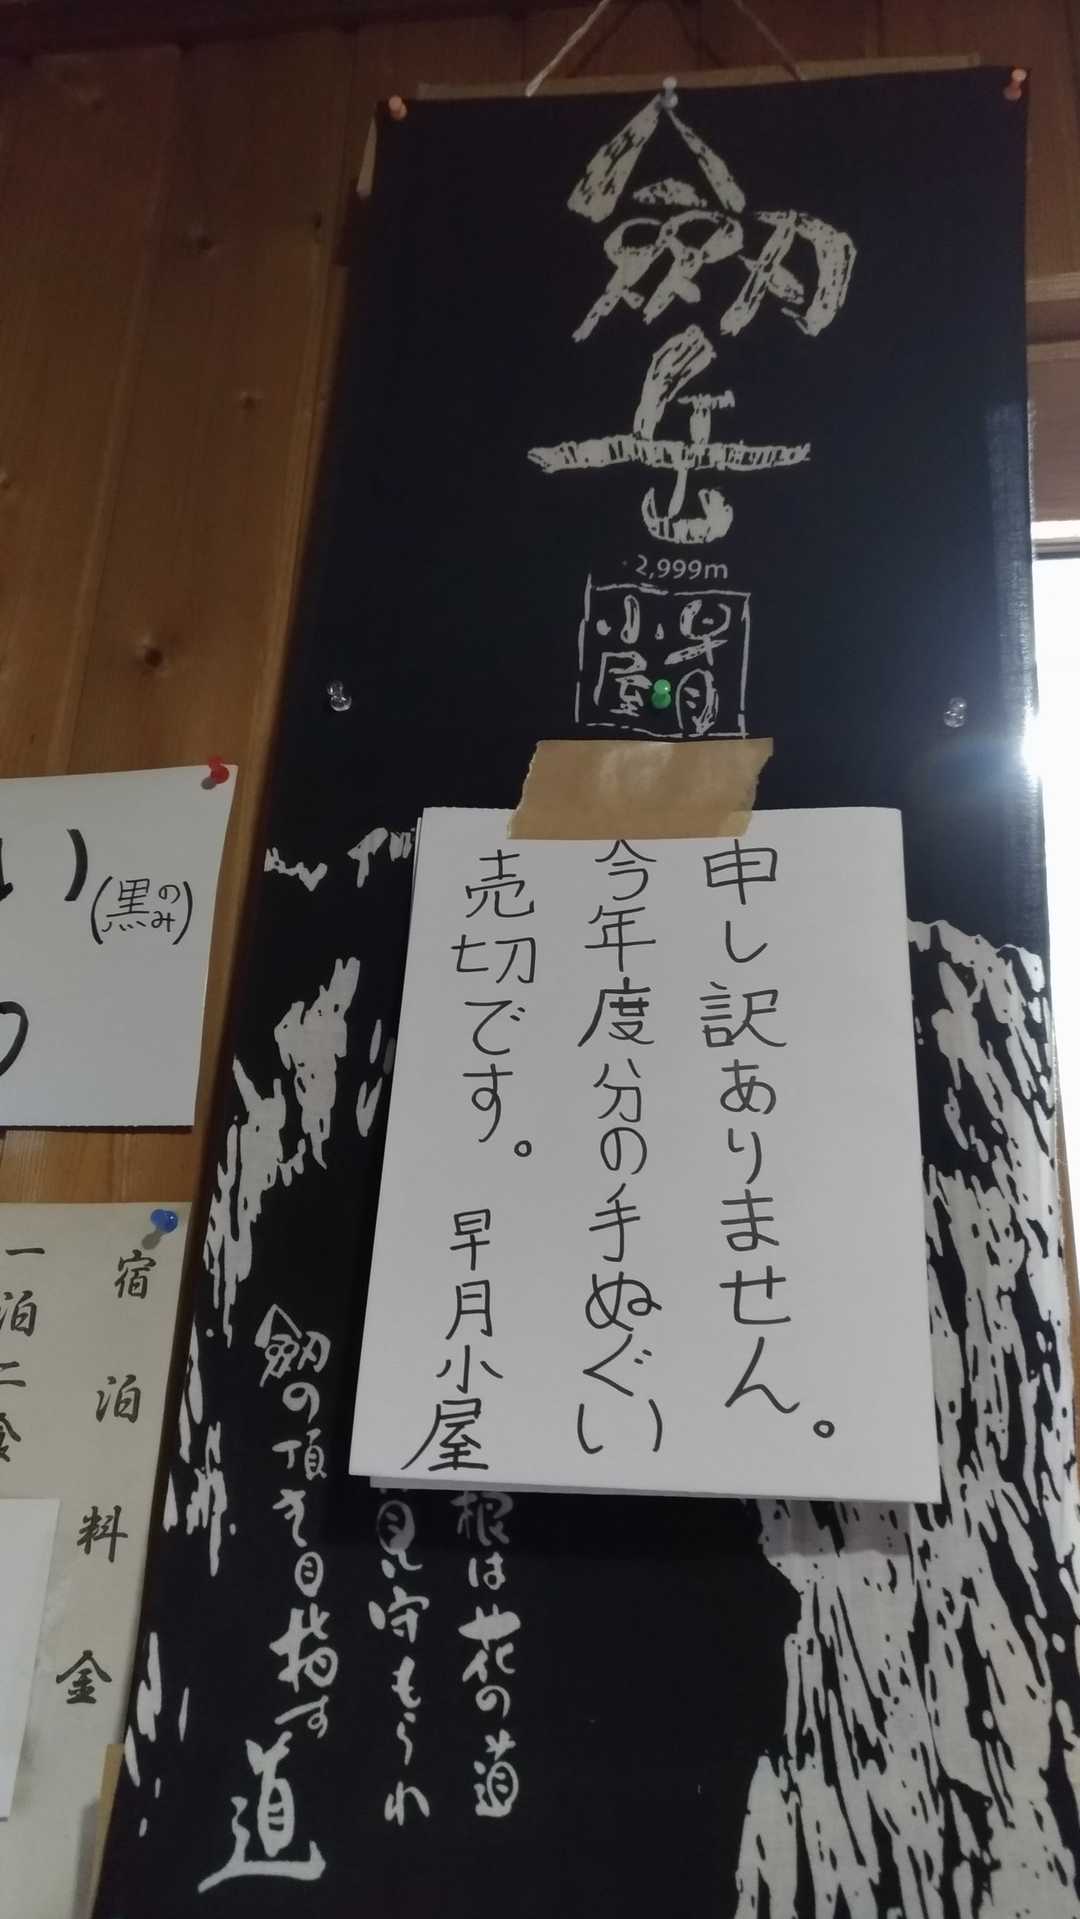 劔岳
2,999m
早月
小屋
申し訳ありません。
今年度分の手ぬぐい
売切です。 早月小屋
根は花の道
見守もられ
劔の頂を目指す
道
(黒のみ)
宿泊料金
一泊二食